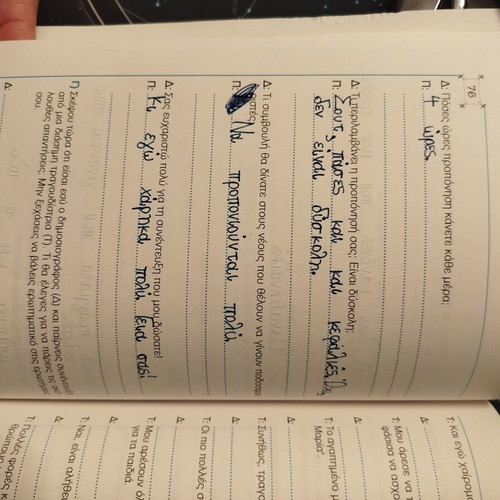 76
Δ: Πόσες ώρες προπόνηση κάνετε κάθε μέρα;
Π: 4 ώρες
Δ: Τι περιλαμβάνει η προπόνησή σας; Είναι δύσκολη;
Π: Σουτ, πάσες και και κεφαλιές. Όχι
δεν είναι δύσκολη.
Δ: Τι συμβουλή θα δίνατε στους νέους που θέλουν να γίνουν ποδοσφαι-
ριστές;
Π: Να προπονιούνται πολύ
Δ: Σας ευχαριστώ πολύ για τη συνέντευξη που μου δώσατε!
Π: Κι εγώ χάρηκα πολύ
Γ) Σκέψου τώρα ότι είσαι εσύ ο δημοσιογράφος (Δ) και παίρνεις συνέντευξη
από μια διάσημη τραγουδίστρια (Τ). Τι θα έλεγες για να πάρεις τις
λουθες απαντήσεις; Μην ξεχάσεις να βάλεις ερωτηματικό στις ερωτήσεις
σου.
Δ:
Τ: Και εγώ χαίρομαι
Δ:
Τ: Μου άρεσε να τ
φάσισα να ασ
Δ:
Τ: Το αγαπημένο μ
Μαρία".
Δ:
Τ: Συνήθως, τραγο
Δ:
Τ: Οι πιο πολλές α
Δ:
Τ: Μου αρέσουν όλ
για τα παιδιά.
Δ:
Τ: Ναι, είναι αλήθει
Δ:
Τ: Πολλές φορές κ